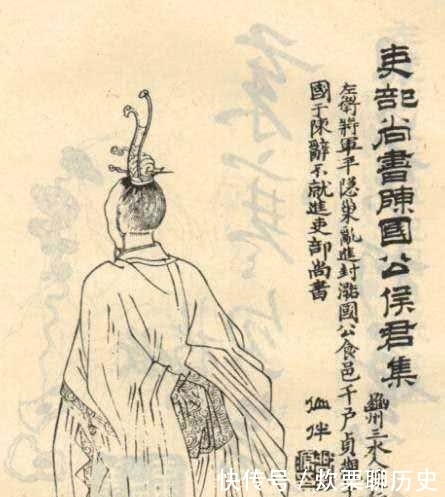 吏部尚書陳國公侯君集
豳州三水
左衛將軍平隱巢亂進封潞國公食邑千戶貞
國于陳辭不就進吏部尚書
快传号/炊栗聊历史